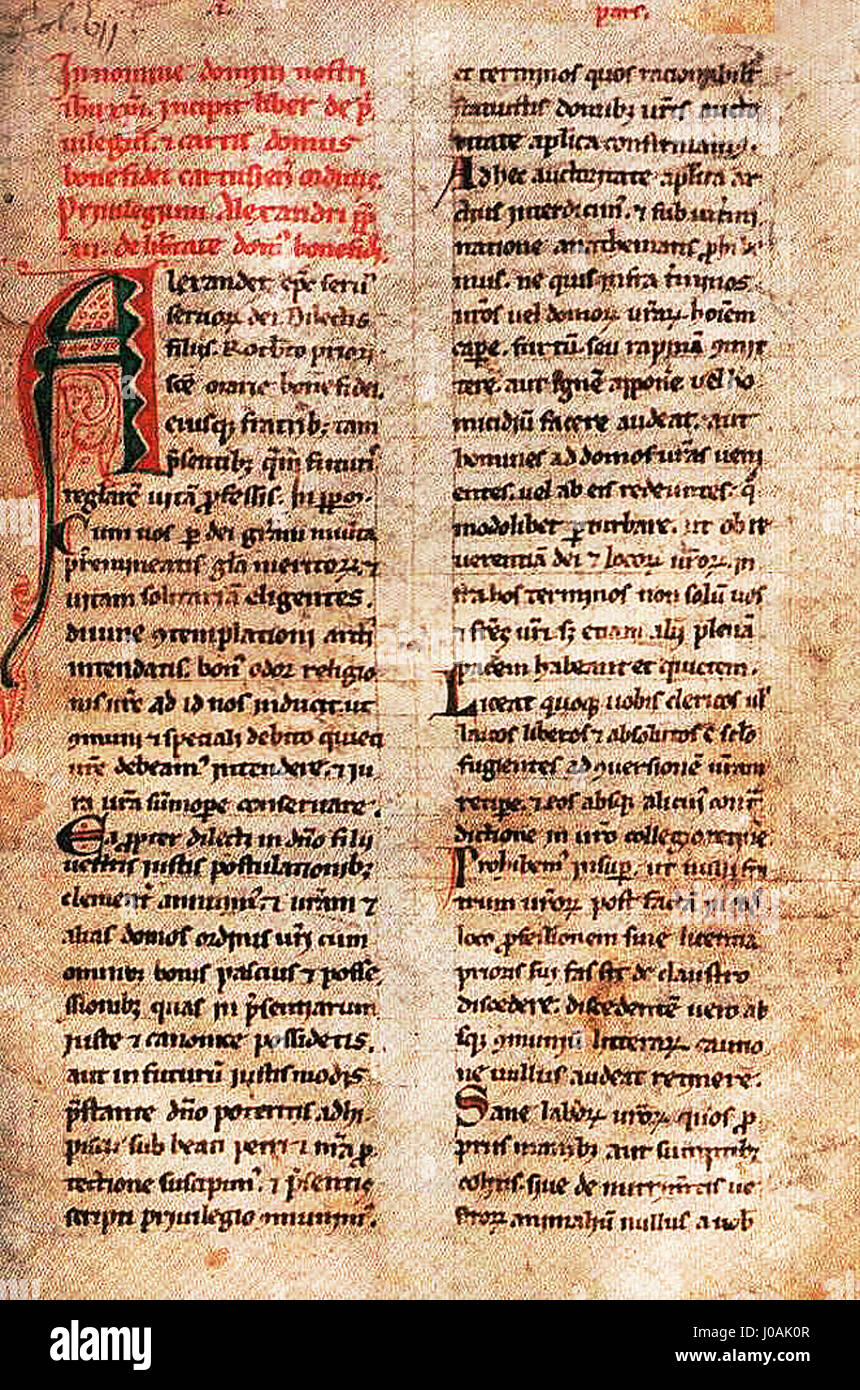 fol. VII
pars.
In nomine domini nostri
ihu xpi. incipit liber de p̄
uilegiis. ⁊ cartis domus
bone fidei cartusien̄ ordinis.
Priuilegium Alexandri pp̄
de libertate dom᷒ bonefidei.
Alexander ep̄c seru᷒
seruoꝝ dei. Dilectis
filiis. Rotb̄to priori
sc̄e marie bone fidei.
eiusqꝫ fratribꝫ tam
p̄sentibꝫ q̄m futuris
regularē uitā ꝓfessis. In ꝑꝑm.
Cum uos ꝑ dei gr̄am
p̄emineatis gl̄a meritoꝝ. ⁊
uitam solitariā eligentes.
diuine ꝯtemplationi
intendatis. bon᷒ odor religio
nis ur̄e ad id nos inducit. ut
ꝯmuni ⁊ speciali debito quieti
ur̄e debeam᷒ intendere. ⁊ iu
ra ur̄a sūmope conseruare.
Ea ꝓpter dilecti in dn̄o filii
uestris iustis postulationibꝫ
clement᷑ annuim᷒. ⁊ ur̄am ⁊
alias domos ordinis ur̄i cum
omnibꝫ bonis pascuis ⁊ posse
ssionibꝫ quas in p̄sentiarum
iuste ⁊ canonice possidetis.
aut in futurū iustis modis
p̄stante dn̄o poteritis adhi
pisci. sub beati petri ⁊ nr̄a ꝓ
tectione suscipim᷒. ⁊ p̄sentis
scripti priuilegio ꝯmunim᷒.
et terminos quos racionabilit᷑
statuistis domibꝫ ur̄is aucto
ritate aplica constituimus.
Ad hec auctoritate aplica ar
tius interdicim᷒. ⁊ sub
natione anathematis ꝓhibe
mus. ne quis infra t̄minos
ur̄os uel domoꝝ ur̄aꝝ hoīem
cape. furtū. seu rapinā ꝯmit
tere. aut ignē apponē uel ho
micidiū facere audeat. aut
homines ad domos ur̄as ueni
entes. uel ab eis redeuntes. q̄
modolibet ꝑturbare. ut ob re
uerentiā dei ⁊ locoꝝ ur̄oꝝ. in
fra hos terminos non solū uos
⁊ fr̄es ur̄i. sꝫ etiam alii plenā
pacem habeant et quietem.
Liceat quoqꝫ uobis clericos ul̓
laicos liberos ⁊ absolutos e sc̄lo
fugientes ad ꝯuersionē ur̄am
recipe. ⁊ eos absqꝫ alicui᷒ cont̄
dictione in ur̄o collegio retinē.
Prohibem᷒ insup. ut nulli fr̄
trum ur̄oꝝ post factā in
loco ꝓfessionem sine licentia
prioris sui fas sit de claustro
discedere. discedentē uero ab
sqꝫ ꝯmuniū litteraꝝ cautio
ne nullus audeat retinere.
Sane laboꝝ ur̄oꝝ quos ꝓ
priis manibꝫ aut sumptibꝫ
colitis. siue de nutrim̄tis ue
stroꝝ animaliū nullus a uob̄
alamy
Image ID: J0AK0R
www.alamy.com